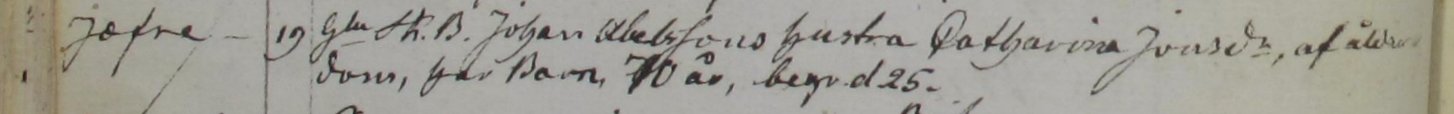 Jæfre - 19 Gln Sk. B. Johan Abelssons hustra Catharina Jonsdr, af ålder
dom, har Barn, 70 år, begr. d 25.